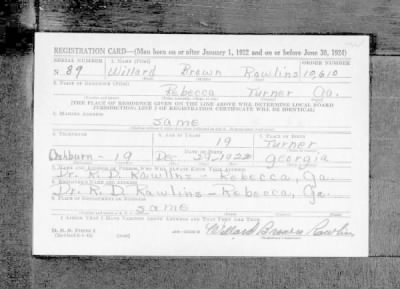 REGISTRATION CARD—(Men born on or after January 1, 1922 and on or before June 30, 1924)
SERIAL NUMBER 1. NAME (Print) ORDER NUMBER
N 89 Willard Brown Rawlins 10,610
2. PLACE OF RESIDENCE (Print)
Rebecca Turner Ga.
[THE PLACE OF RESIDENCE GIVEN ON THE LINE ABOVE WILL DETERMINE LOCAL BOARD
JURISDICTION; LINE 2 OF REGISTRATION CERTIFICATE WILL BE IDENTICAL]
3. MAILING ADDRESS
same
4. TELEPHONE 5. AGE IN YEARS 6. PLACE OF BIRTH
19 Turner
DATE OF BIRTH
Ashburn - 19 Dec. 1922 Georgia
7. NAME AND ADDRESS OF PERSON WHO WILL ALWAYS KNOW YOUR ADDRESS
Dr. K. D. Rawlins - Rebecca, Ga.
8. EMPLOYER'S NAME AND ADDRESS
Dr. K. D. Rawlins - Rebecca, Ga.
9. PLACE OF EMPLOYMENT OR BUSINESS
same
I AFFIRM THAT I HAVE VERIFIED ABOVE ANSWERS AND THAT THEY ARE TRUE.
D. S. S. Form 1
Willard Brown Rawlins